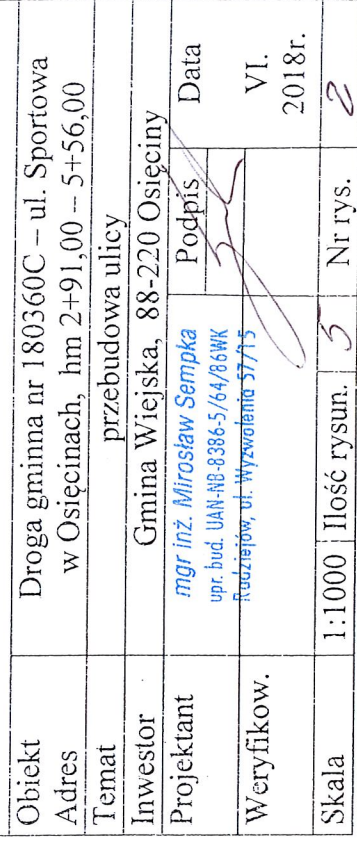 Obiekt Droga gminna nr 180360C – ul. Sportowa
Adres w Osięcinach, hm 2+91,00 – 5+56,00
Temat przebudowa ulicy
Inwestor Gmina Wiejska, 88-220 Osięciny
Projektant mgr inż. Mirosław Sempka Podpis Data
upr. bud. UAN-NB-8386-5/64/86WK
Radziejów, ul. Wyzwolenia 57/15
Weryfikow. VI.
2018r.
Skala 1:1000 Ilość rysun. 5 Nr rys. 2